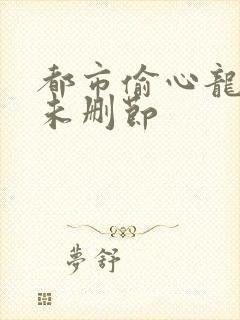 都市偷心龍
未删節
夢舒